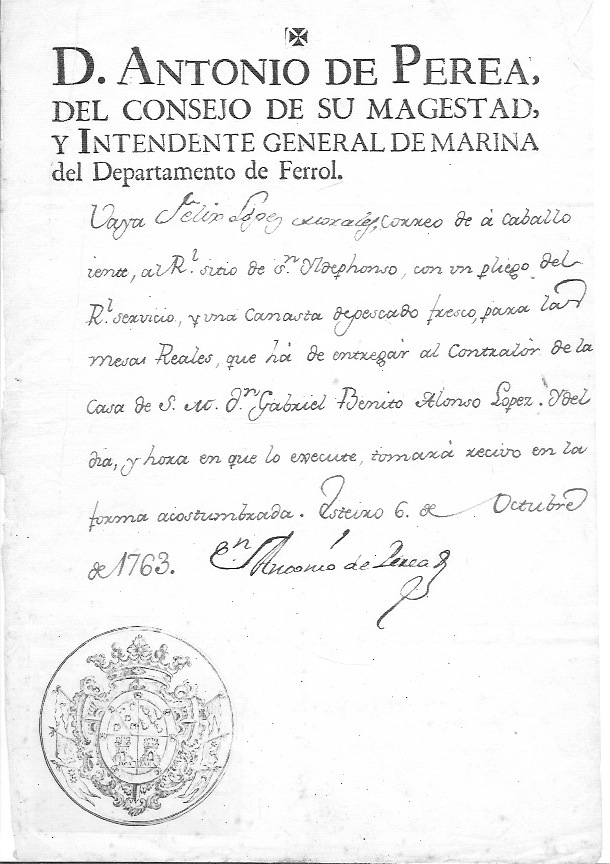 D. ANTONIO DE PEREA,
DEL CONSEJO DE SU MAGESTAD,
Y INTENDENTE GENERAL DE MARINA
del Departamento de Ferrol.
Vaya Felix Lopez Morales, Correo de à Caballo
iente, al R.l sitio de S.n Yldephonso, con vn pliego del
R.l servicio, y una Canasta de pescado fresco, para las
mesas Reales, que hà de entregàr al Contralòr de la
Casa de S. M. D.n Gabriel Benito Alonso Lopez. Y del
dia, y hora en que lo execute, tomarà recivo en la
forma acostumbrada. Esteiro 6. de Octubre
de 1763. D.n Antonio de Perea